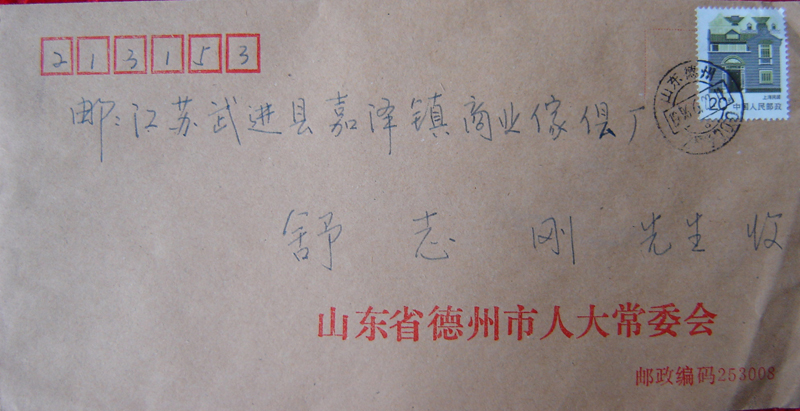 213153
邮:江苏武进县嘉泽镇商业傢俱厂
舒志刚 先生 收
山东省德州市人大常委会
邮政编码253008
上海民居
20
中国人民邮政
山东德州